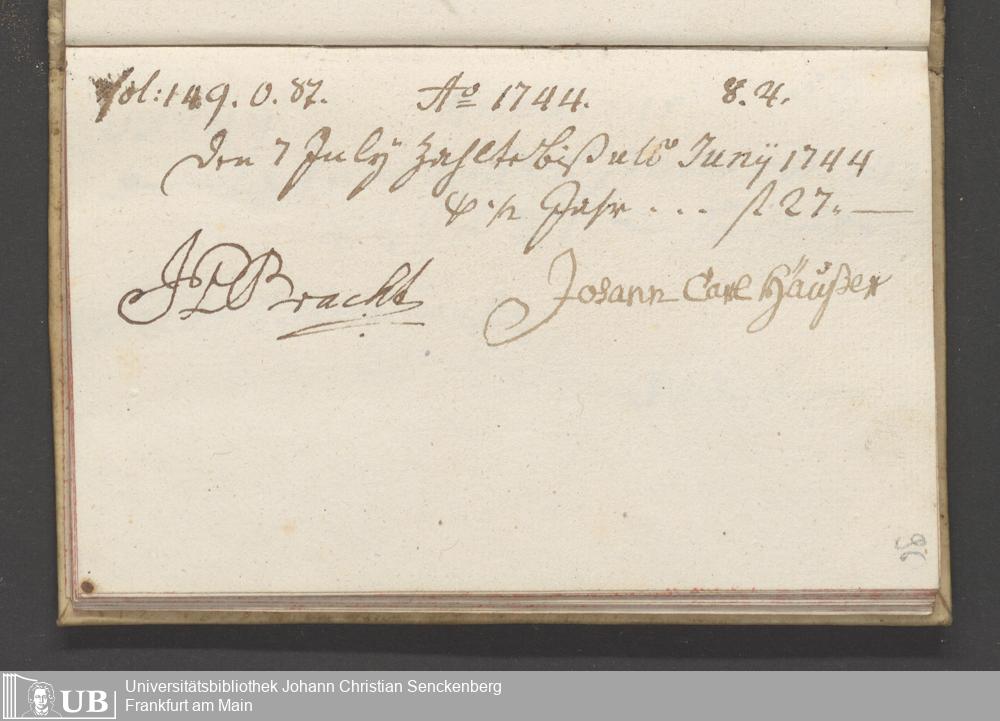 fol: 149. O. 87. Ao 1744. 8. 4.
Den 7 July zahlte biß ult° Junÿ 1744
Jahr . . . fl 27. —
JPBracht Johann Carl Häußer
26
UB Universitätsbibliothek Johann Christian Senckenberg
Frankfurt am Main